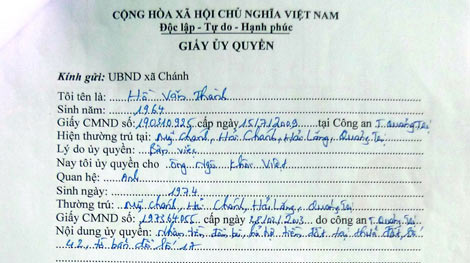 CỘNG HÒA XÃ HỘI CHỦ NGHĨA VIỆT NAM
Độc lập - Tự do - Hạnh phúc
GIẤY ỦY QUYỀN
Kính gửi: UBND xã Chánh
Tôi tên là: Hồ Văn Thành
Sinh năm: 1964
Giấy CMND số: 190310925 cấp ngày 15/7/2009 tại Công an T. Quảng Trị
Hiện thường trú tại: Mỹ Chánh, Hải Chánh, Hải Lăng, Quảng Trị
Lý do ủy quyền: Bận việc
Nay tôi ủy quyền cho ông Khắc Việt
Quan hệ: Anh
Sinh ngày: 1974
Thường trú: Mỹ Chánh, Hải Chánh, Hải Lăng, Quảng Trị
Giấy CMND số: cấp ngày do công an T. Quảng Trị
Nội dung ủy quyền: Nhận tiền đền bù, hỗ trợ tiền đất tại thửa đất số
42, tờ bản đồ số 17